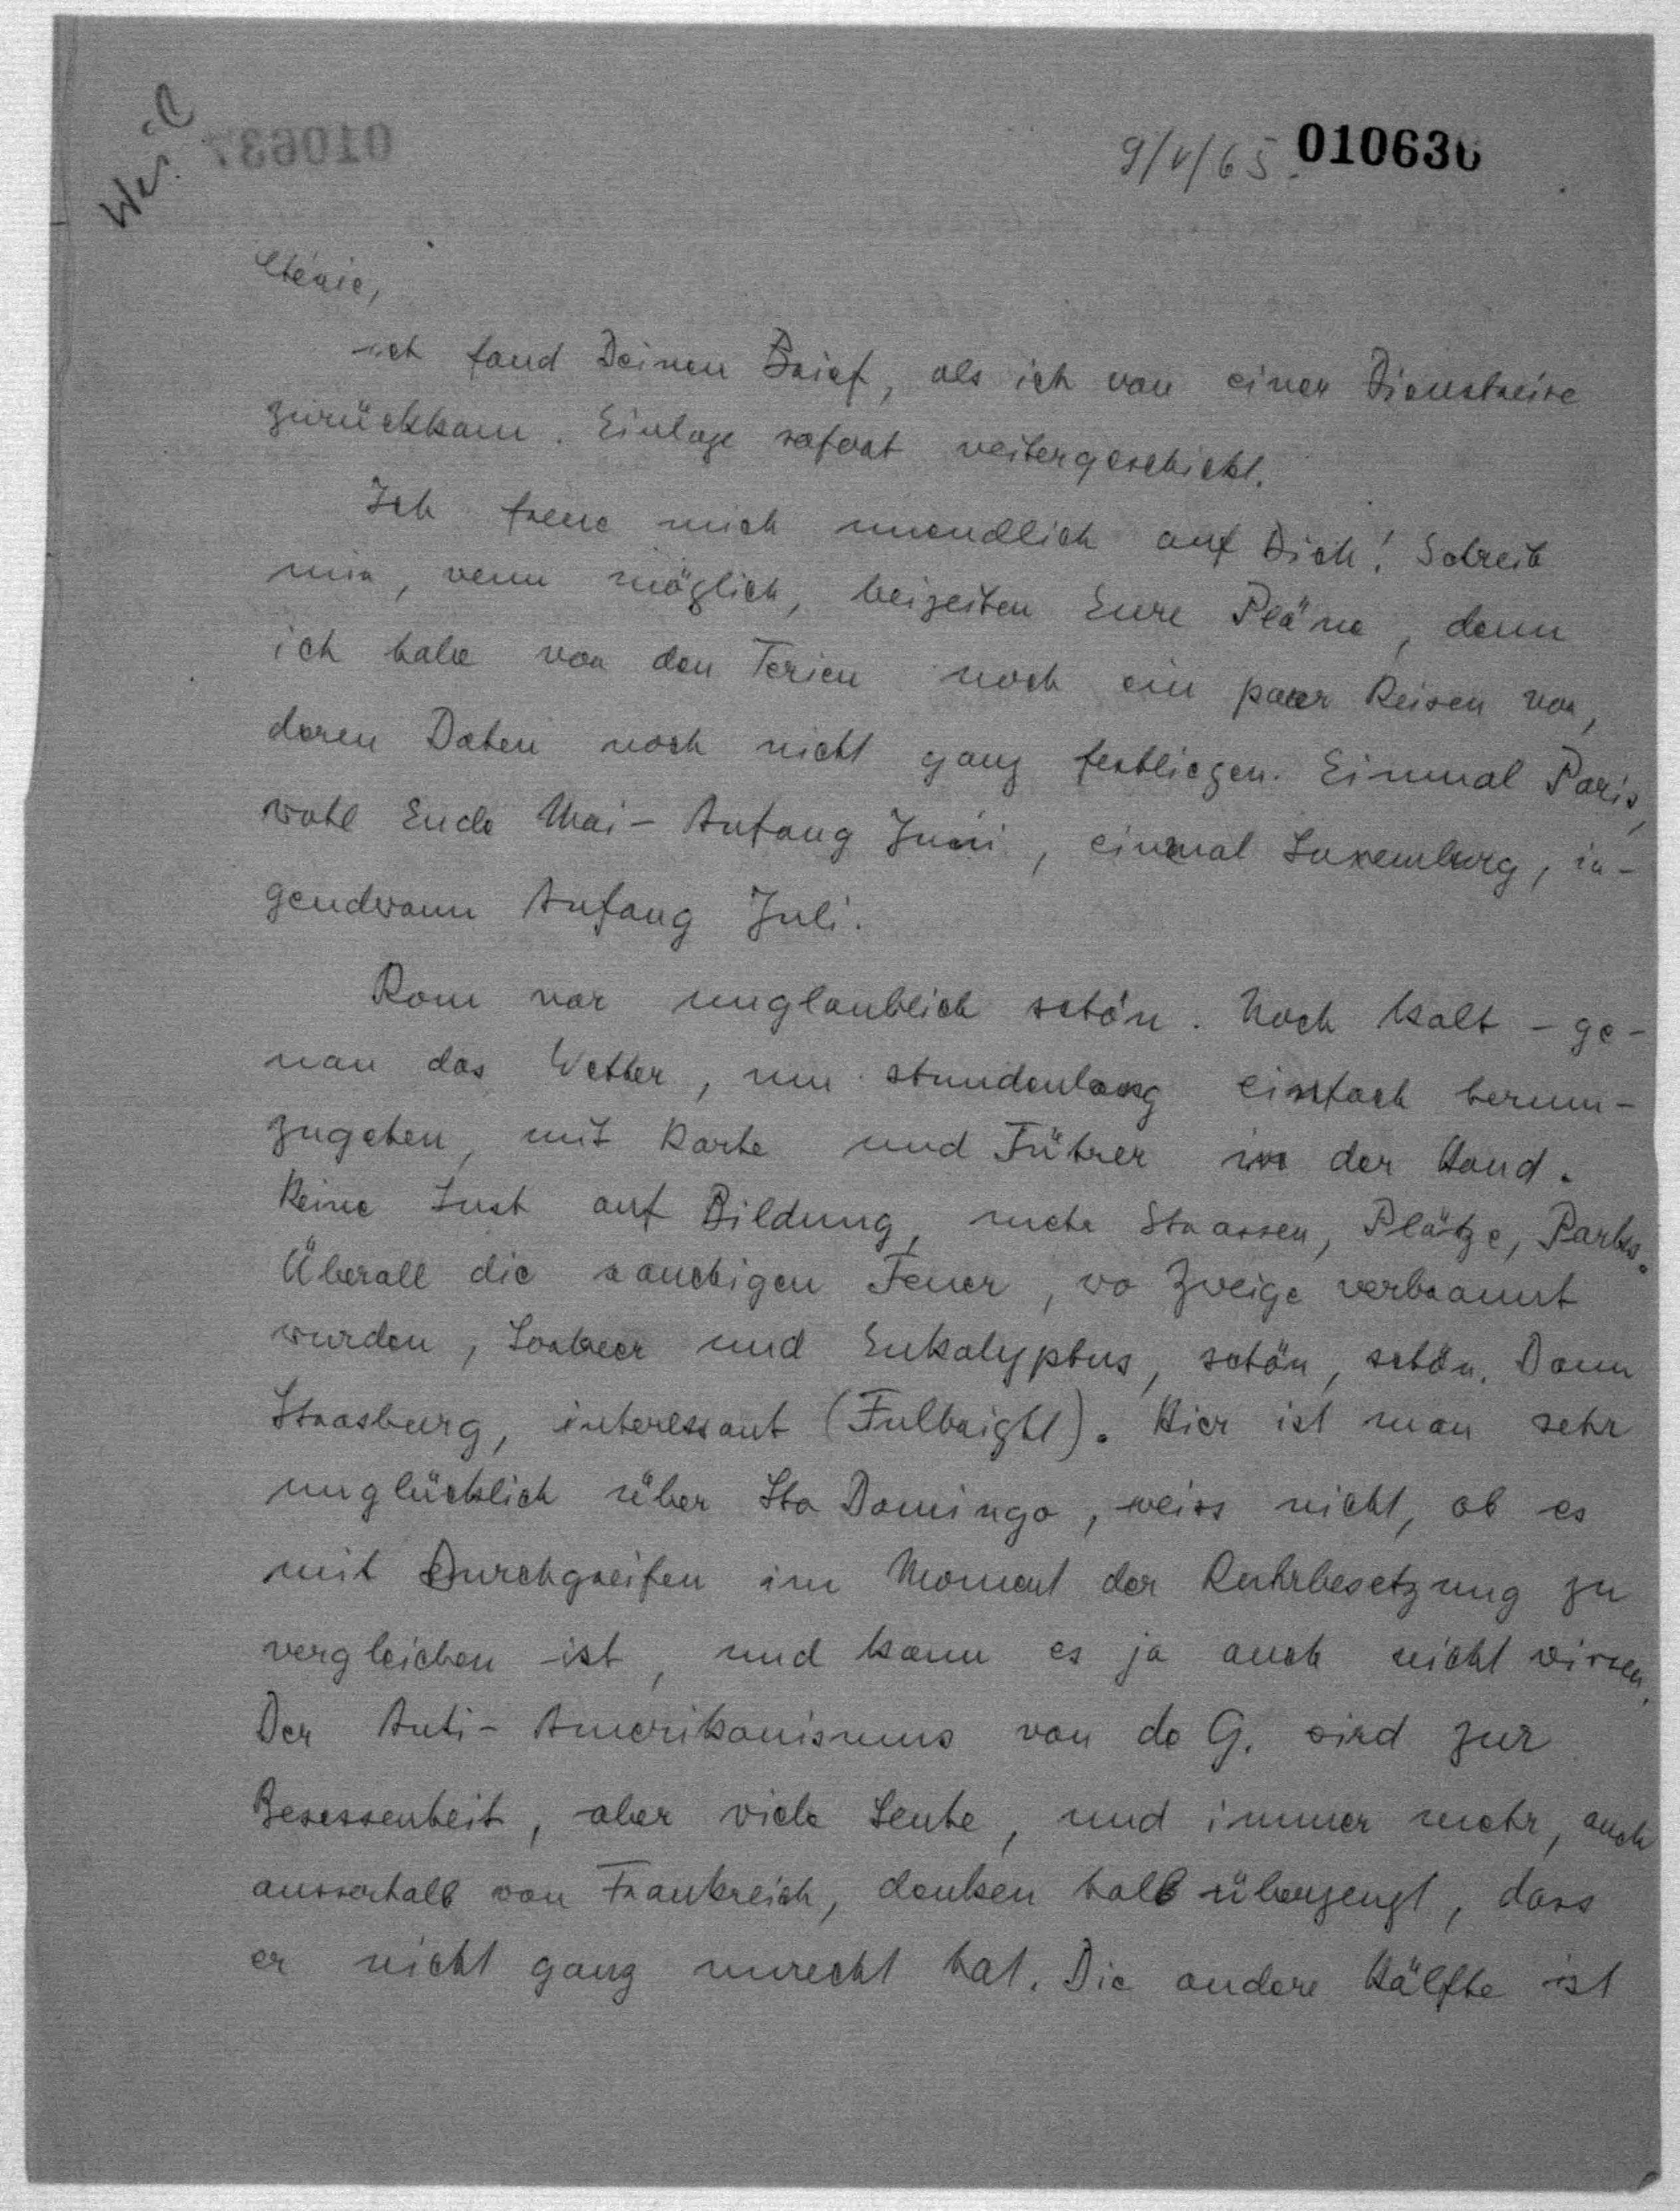 Weil
010637
9/V/65.
010636
Chérie,
ich fand Deinen Brief, als ich von einer Dienstreise
zurückkam. Einlage sofort weitergeschickt.
Ich freue mich unendlich auf Dich! Schreib
mir, wenn möglich, beizeiten Eure Pläne, denn
ich habe vor den Ferien noch ein paar Reisen vor,
deren Daten noch nicht ganz festliegen. Einmal Paris,
wohl Ende Mai - Anfang Juni, einmal Luxemburg, ir-
gendwann Anfang Juli.
Rom war unglaublich schön. Noch kalt - ge-
nau das Wetter, um stundenlang einfach herum-
zugehen, mit Karte und Führer in der Hand.
Keine Lust auf Bildung, mehr Strassen, Plätze, Parks.
Überall die rauchigen Feuer, wo Zweige verbrannt
wurden, Lorbeer und Eukalyptus, schön, schön. Dann
Strasburg, interessant (Fulbright). Hier ist man sehr
unglücklich über Sto Domingo, weiss nicht, ob es
mit Durchgreifen im Moment der Ruhrbesetzung zu
vergleichen ist, und kann es ja auch nicht wissen.
Der Anti-Amerikanismus von de G. wird zur
Besessenheit, aber viele Leute, und immer mehr, auch
ausserhalb von Frankreich, denken halb überzeugt, dass
er nicht ganz unrecht hat. Die andere Hälfte ist